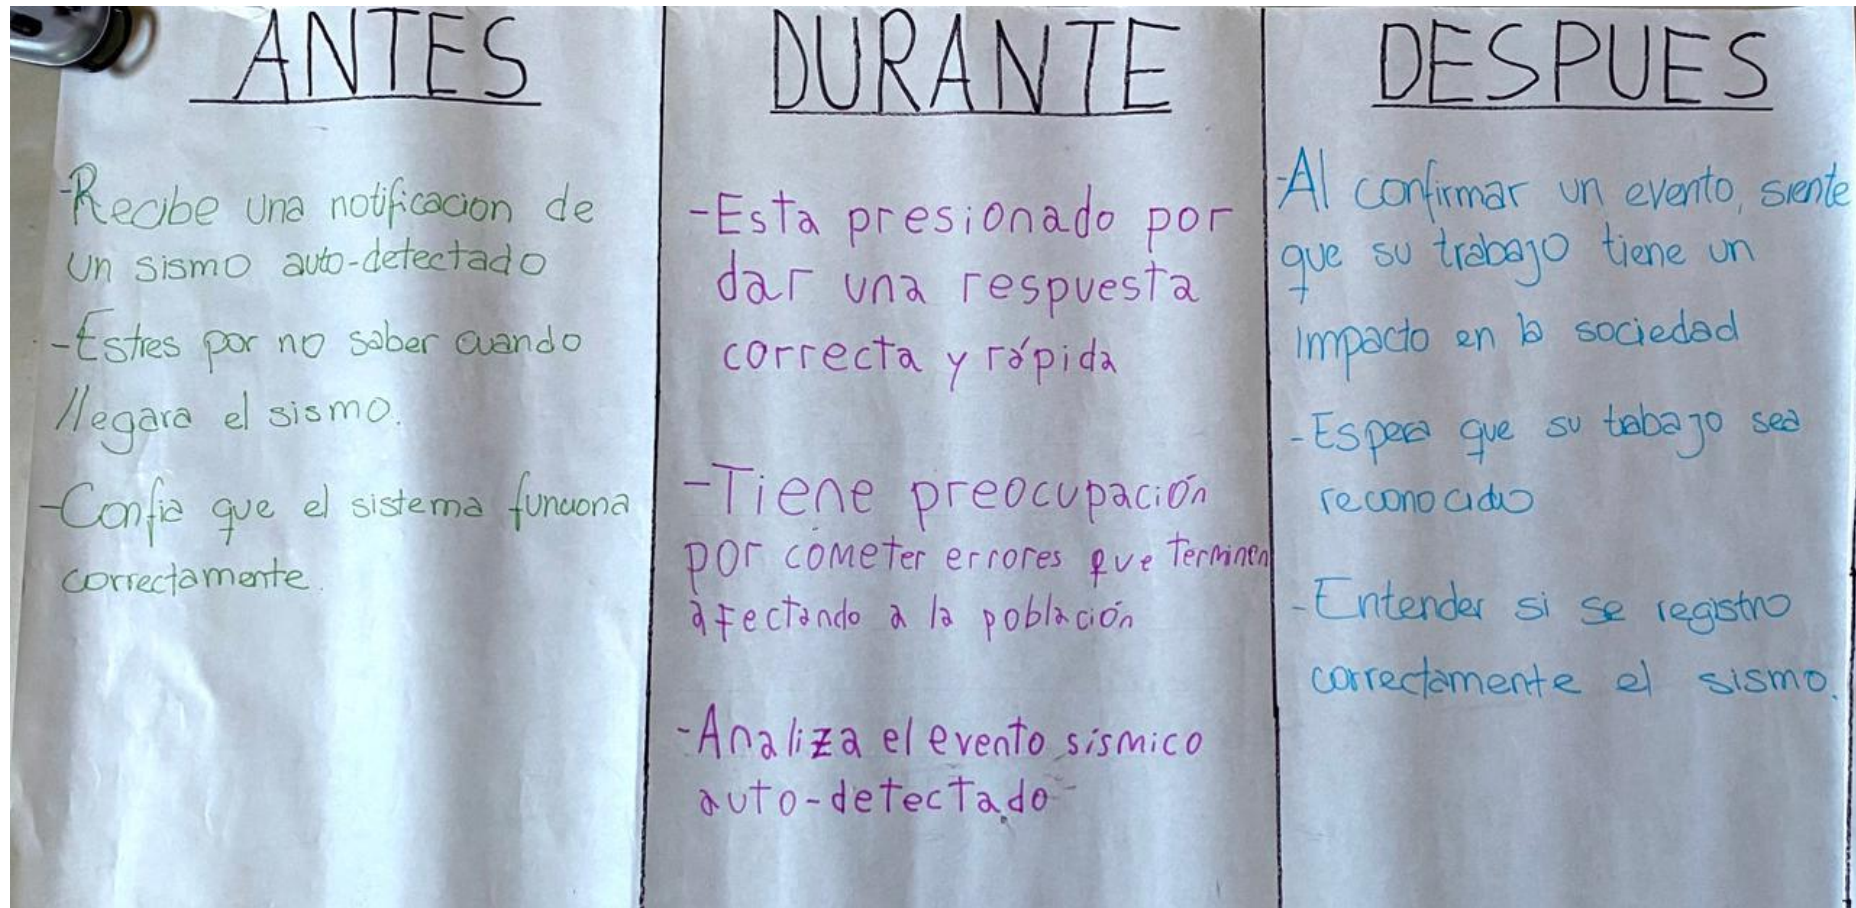 ANTES
-Recibe una notificacion de
un sismo auto-detectado
-Estres por no saber cuando
llegara el sismo.
-Confia que el sistema funciona
correctamente.
DURANTE
-Esta presionado por
dar una respuesta
correcta y rápida
-Tiene preocupación
por cometer errores que terminen
afectando a la población
-Analiza el evento sísmico
auto-detectado
DESPUES
-Al confirmar un evento, siente
que su trabajo tiene un
impacto en la sociedad
-Espera que su trabajo sea
reconocido
-Entender si se registro
correctamente el sismo.